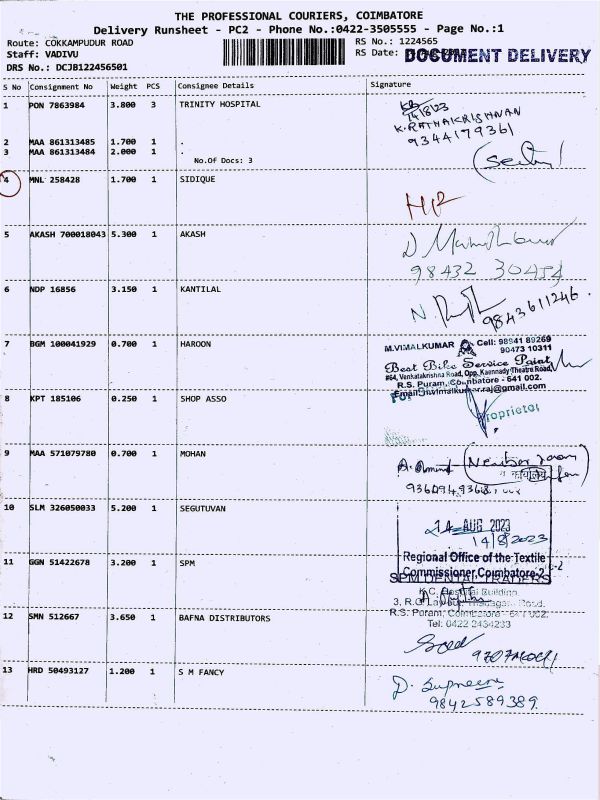 THE PROFESSIONAL COURIERS, COIMBATORE
Delivery Runsheet - PC2 - Phone No.:0422-3505555 - Page No.:1
Route: COKKAMPUDUR ROAD
RS No.: 1224565
Staff: VADIVU
RS Date:
DOCUMENT DELIVERY
DRS No.: DCJB122456501
S No Consignment No Weight PCS Consignee Details Signature
1 PON 7863984 3.800 3 TRINITY HOSPITAL
14/8/23
K.RATHAKRISHNAN
9344179361
2 MAA 861313485 1.700 1 .
3 MAA 861313484 2.000 1 .
No.Of Docs: 3
4 MNL 258428 1.700 1 SIDIQUE
5 AKASH 700018043 5.300 1 AKASH
98432 30454
6 NDP 16856 3.150 1 KANTILAL
9843611246.
7 BGM 100041929 0.700 1 HAROON
M.VIMALKUMAR Cell: 98941 89269
90473 10311
Best Bike Service Point
#64, Venkatakrishna Road, Opp. Kannady Theatre Road,
R.S. Puram, Coimbatore - 641 002.
8 KPT 185106 0.250 1 SHOP ASSO
For
Proprietor
9 MAA 571079780 0.700 1 MOHAN
10 SLM 326050033 5.200 1 SEGUTUVAN
14 AUG 2023
14/8/2023
Regional Office of the Textile
Commissioner, Coimbatore-2
11 GGN 51422678 3.200 1 SPM
SPM DENTAL TRADERS
R.S. Puram, Coimbatore - 641 002.
Tel: 0422 2434233
12 SMN 512667 3.650 1 BAFNA DISTRIBUTORS
13 HRD 50493127 1.200 1 S M FANCY
9842589389.